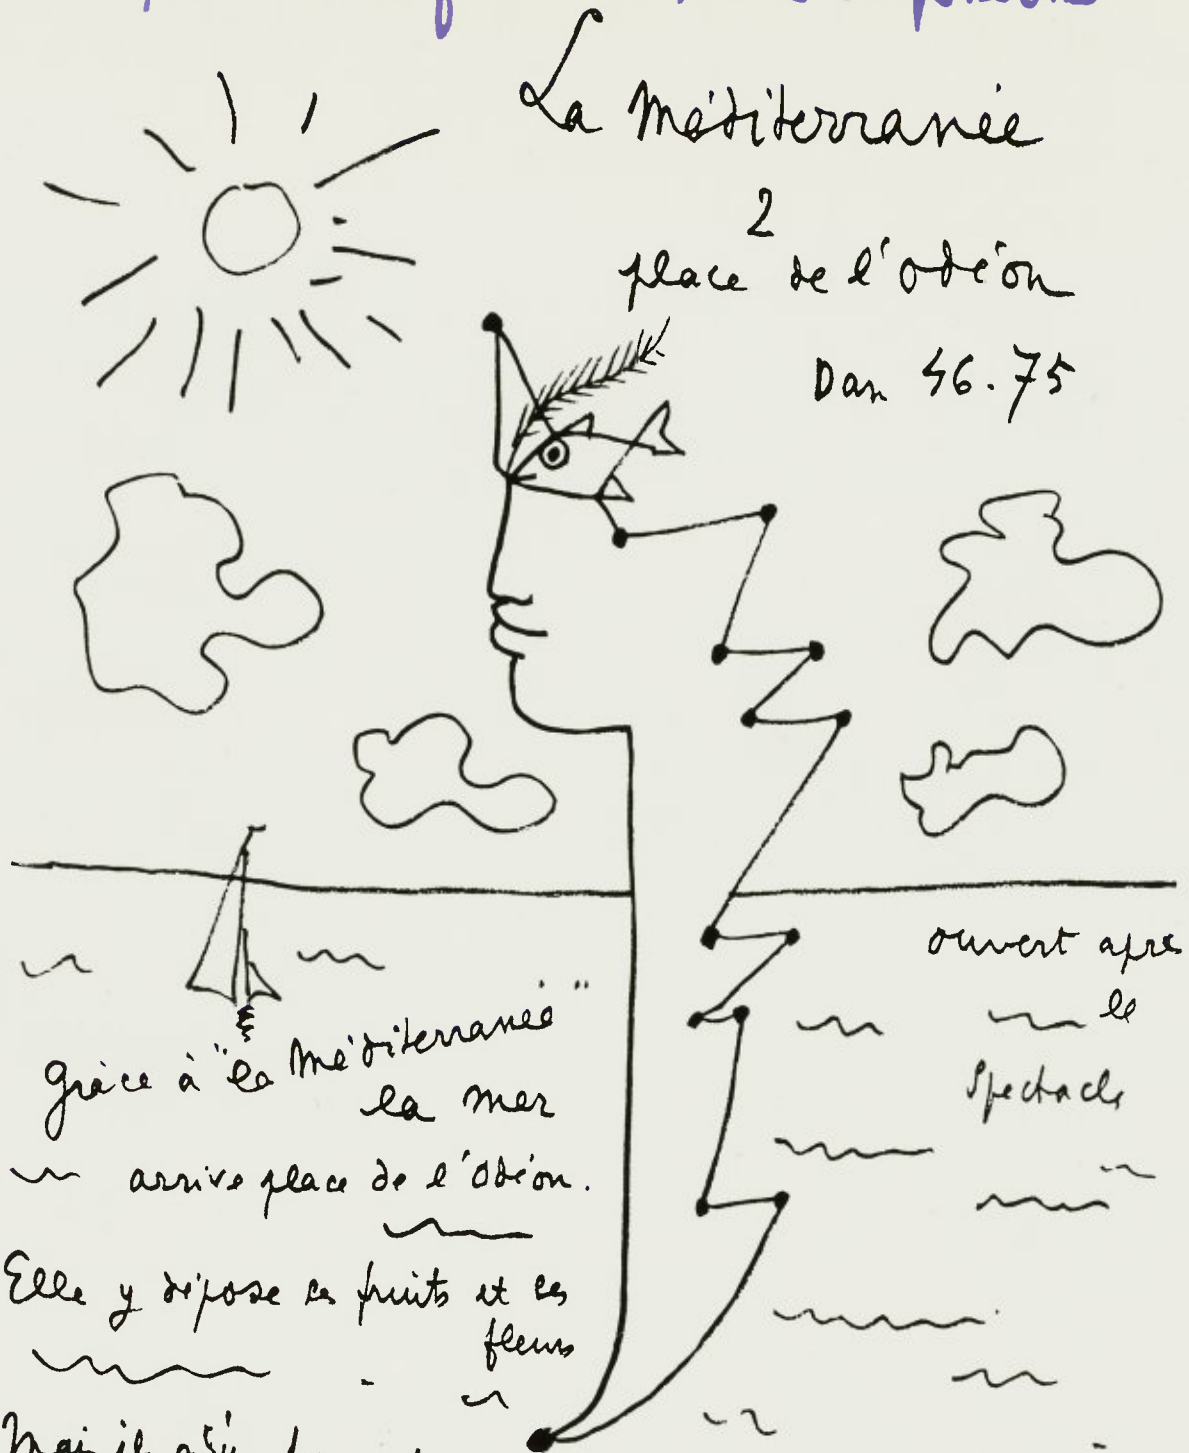 La Méditerranée
2
place de l'Odéon
Dan 46.75
ouvert apre
le
Spectacle
Grâce à "la Méditerranée"
la mer
arrive place de l'Odéon.
Elle y dépose ses fruits et ses
fleurs